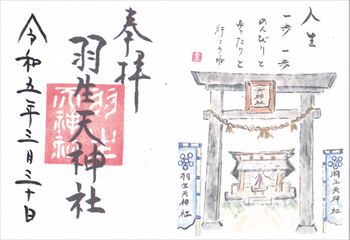 人生
一歩一歩
のんびりと
ゆったりと
行こうね
天神社
羽生天神社
羽生天神社
奉拝
羽生天神社
羽生
天神社
令和五年三月三十日